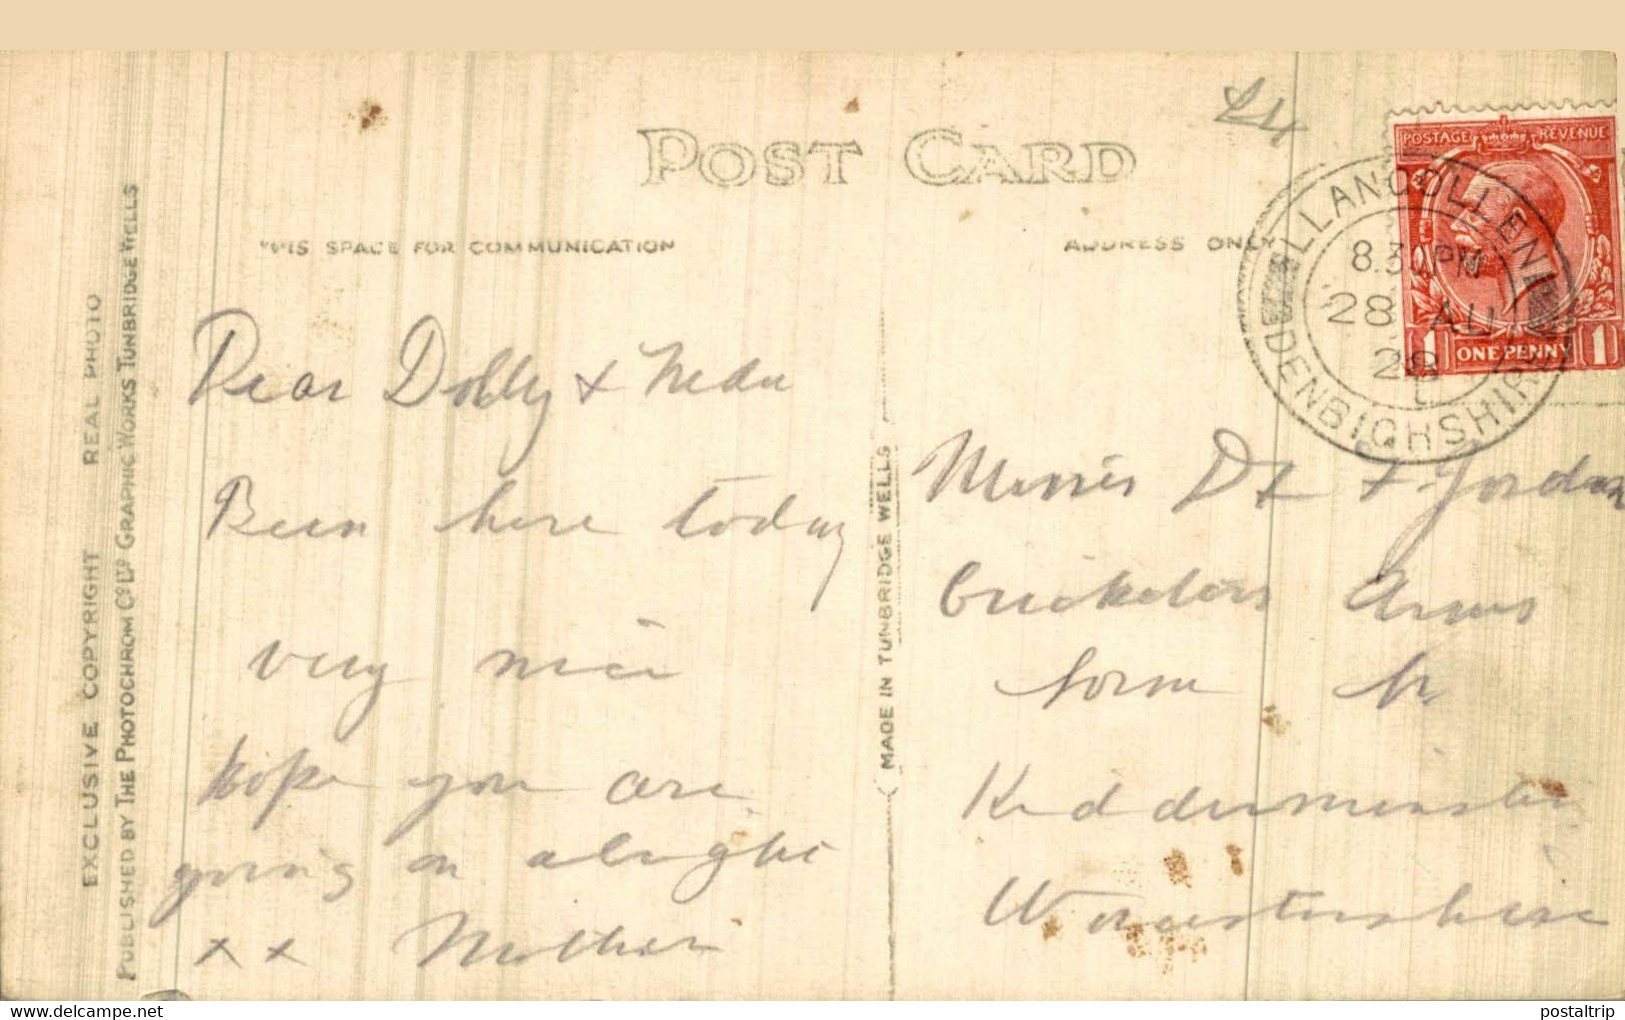 POST CARD
THIS SPACE FOR COMMUNICATION
ADDRESS ONLY
POSTAGE REVENUE
ONE PENNY
1 1
LLANGOLLEN
8.3 PM
28 AU
28
DENBIGHSHIRE
EXCLUSIVE COPYRIGHT REAL PHOTO
PUBLISHED BY THE PHOTOCHROM CO. LTD GRAPHIC WORKS TUNBRIDGE WELLS
MADE IN TUNBRIDGE WELLS
Dear Dolly +
Been here today
very nice
Hope you are
going on alright
x x Mother
D + Jordan
Cricketers Arms
Kidderminster
Worcestershire
Delcampe.net
postaltrip